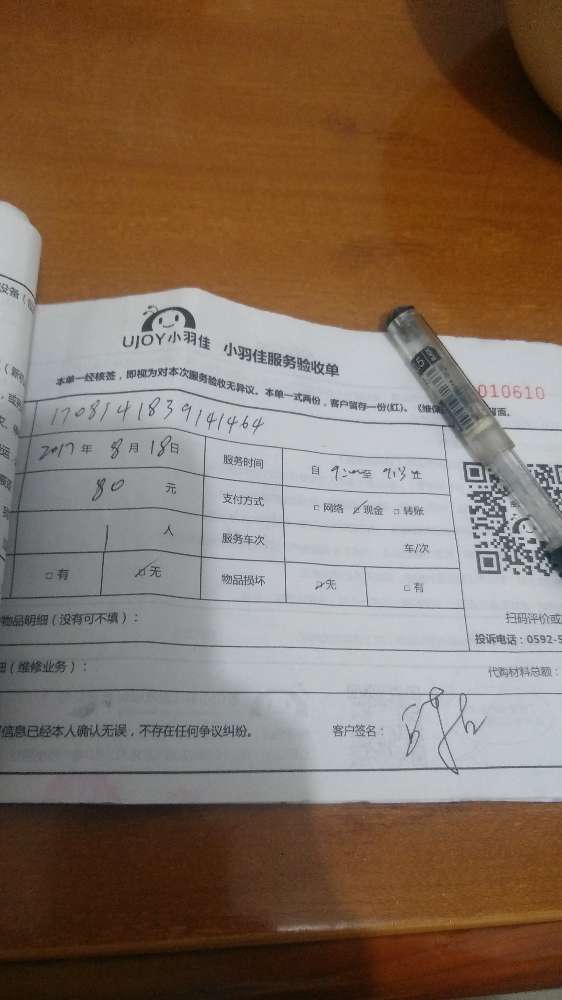 UJOY小羽佳 小羽佳服务验收单
本单一经核签，即视为对本次服务验收无异议。本单一式两份，客户留存一份(红)。《维保
010610
1708141839141464
2017年 8月 18日 服务时间 自 至
80 元 支付方式 □ 网络 ☑ 现金 □ 转账
1 人 服务车次 车/次
□ 有 ☑ 无 物品损坏 ☑ 无 □ 有
物品明细（没有可不填）：
扫码评价或
投诉电话：0592-5
（维修业务）： 代购材料总额：
信息已经本人确认无误，不存在任何争议纠纷。 客户签名：